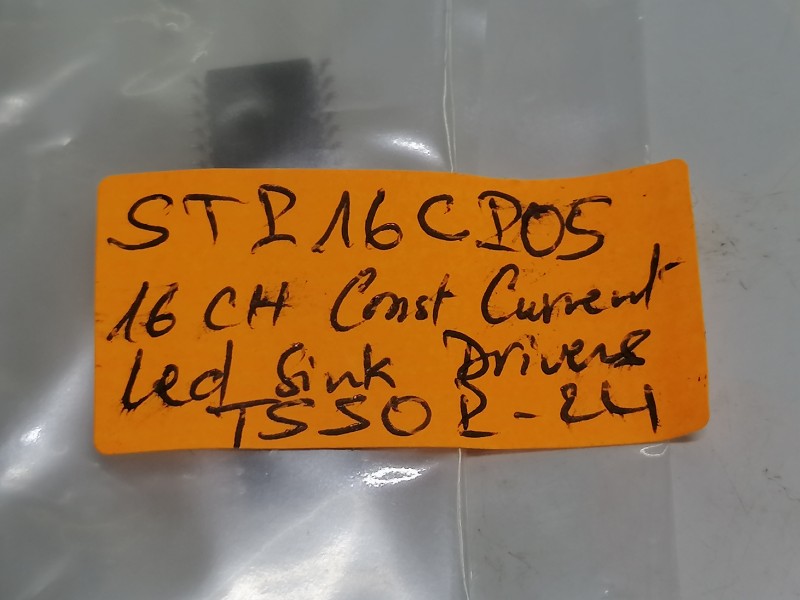 STP16CP05
16 CH Const Current
Led Sink Drivers
TSSOP-24